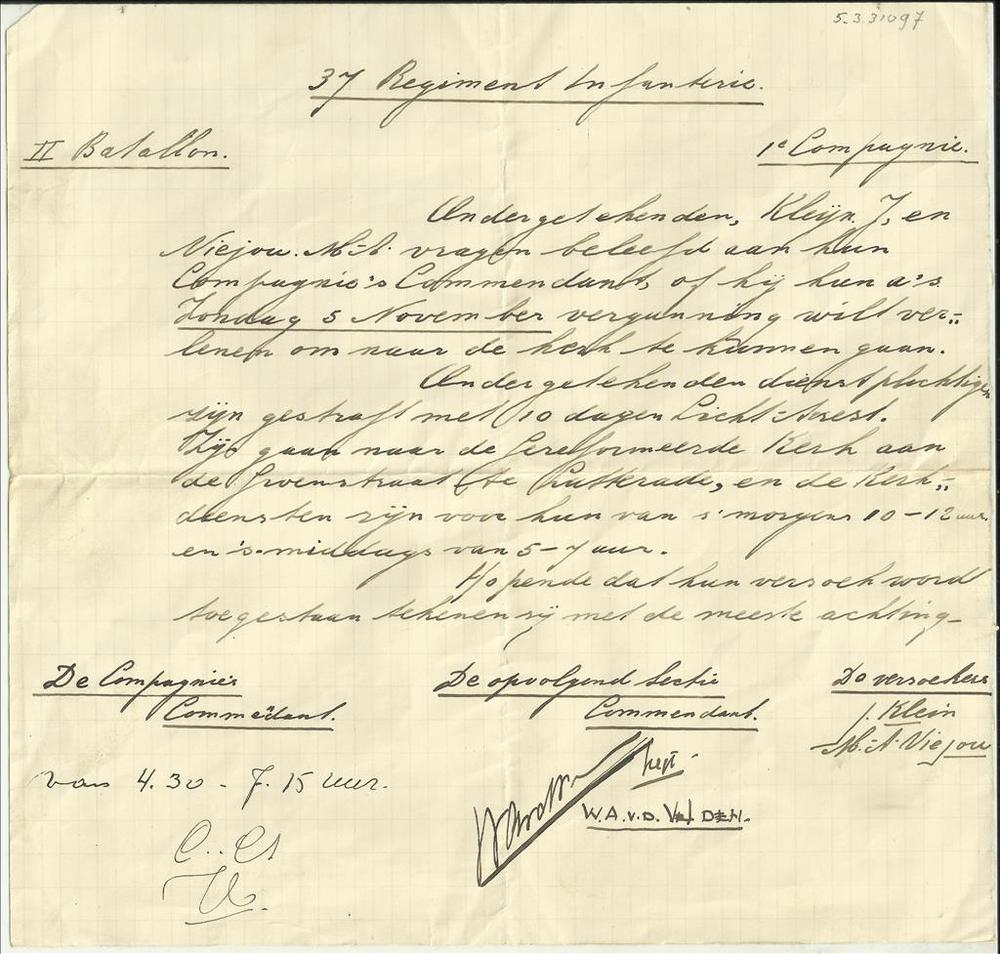 5.3.31097
37 Regiment Infanterie.
II Batallon. 1e Compagnie.
Ondergetekenden, Kleijn. J, en
Niejou. M.A. vragen beleefd aan hun
Compagnie's Commendant, of hij hun a's
Zondag 5 November vergunning wilt ver-
lenen om naar de kerk te kunnen gaan.
Ondergetekenden dienstplichtigen
zijn gestraft met 10 dagen Licht-Arest.
Zij gaan naar de Gereformeerde Kerk aan
de Groenstraat te Lutterade, en de Kerk-
diensten zijn voor hun van s'morgens 10-12 uur
en 's-middags van 5-7 uur.
Hopende dat hun versoek word
toegestaan tekenen zij met de meeste achting-
De Compagnie's De opvolgend Sectie De versoekers
Commedant. Commendant. J. Klein
M.A. Viejou
van 4.30 - 7.15 uur.
W.A.v.D. VELDEN.
C.. C1